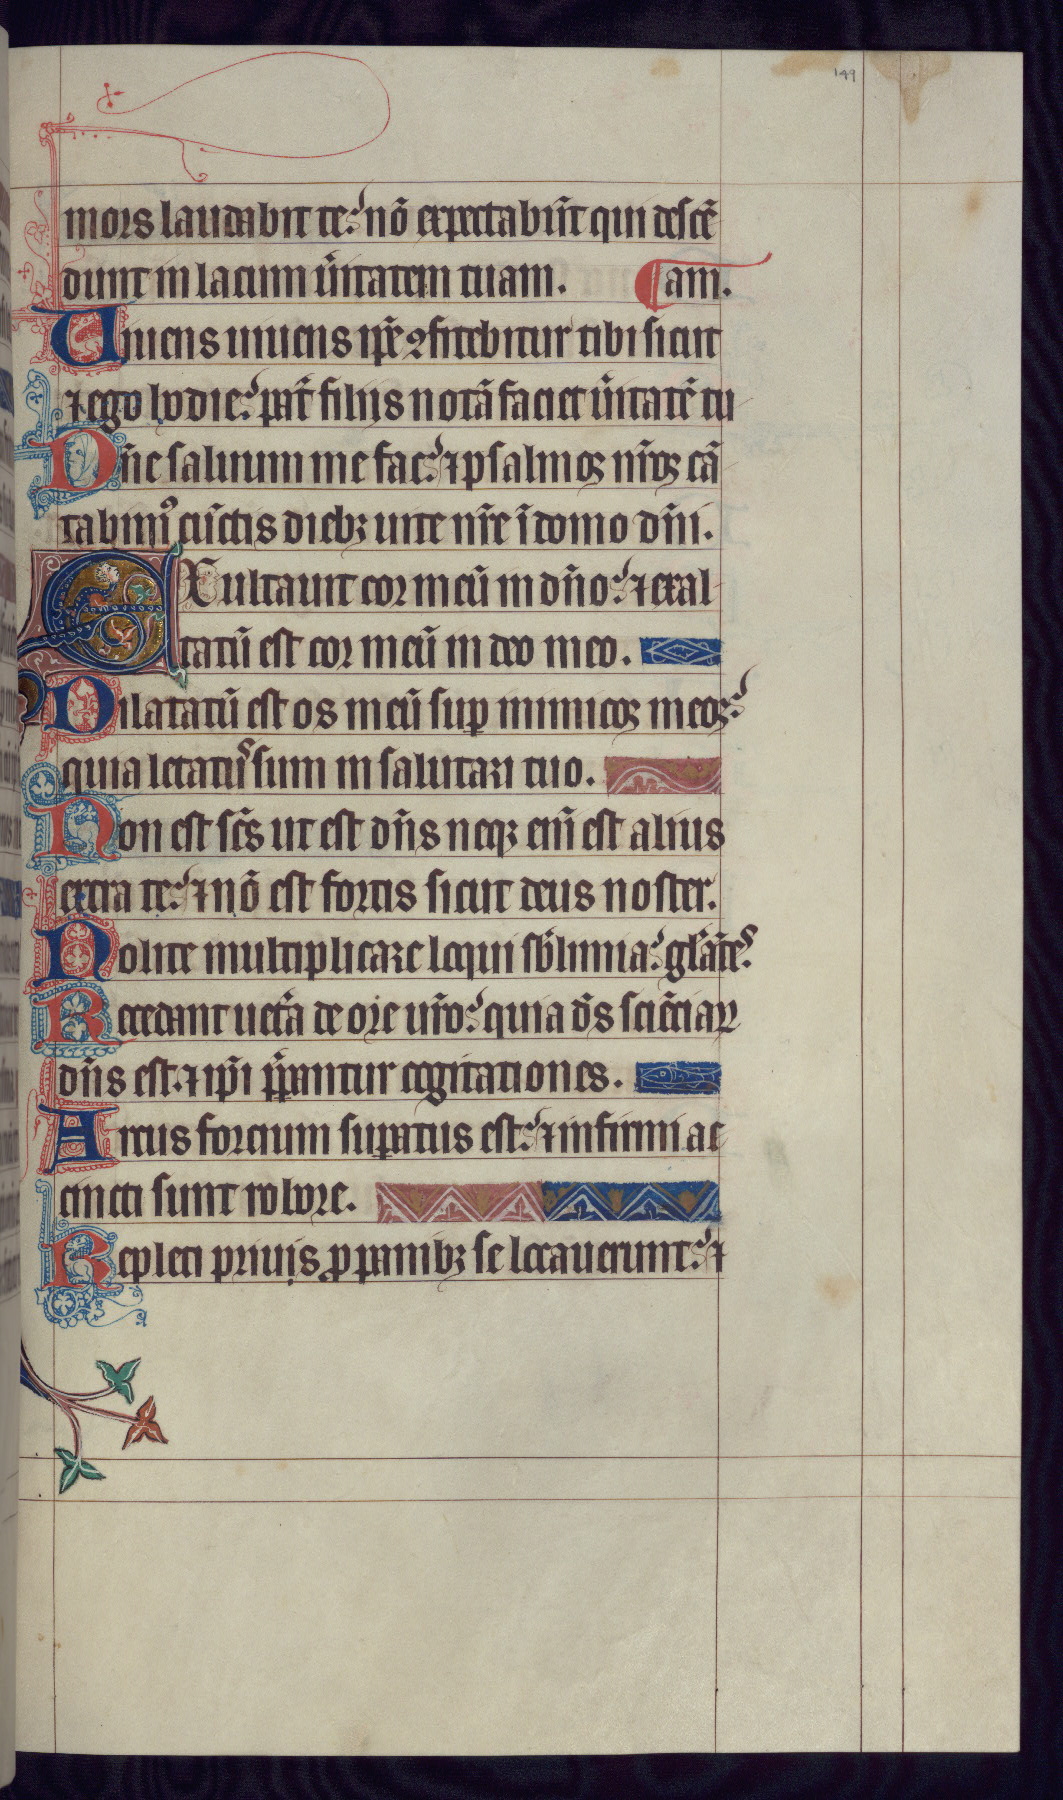 149
mors laudabit te: nō expectabūt qui descē
dunt in lacum ũitatem tuam. am.
Uiuens uiuens ip̄e ꝯfitebitur tibi sicut
⁊ ego hodie: pat̃ filiis notā faciet ũitatē tu
Dn̄e saluum me fac: ⁊ psalmoꝝ nr̄oꝝ cā
tabimꝰ cūctis diebꝫ uite nr̄e ī domo dn̄i.
EXultauit cor meū in dn̄o: ⁊ exal
tatū est cor meū in deo meo.
Dilatatū est os meū suꝑ inimicos meos:
quia letatꝰ sum in salutari tuo.
Non est sc̄s ut est dn̄s neqꝫ eni̅ est alius
extra te: ⁊ nō est fortis sicut deus noster.
Nolite multiplicare loqui sb̓limia: gl̓ātes
Recedant uet̃a de ore ur̄o: quia d̄s sciētiaꝝ
dn̄s est. ⁊ ip̄i p̄parantur cogitationes.
Arcus forcium suꝑatus est: ⁊ infirmi ac
cincti sunt robore.
Repleti prius pro panibꝫ se locauerunt: ⁊